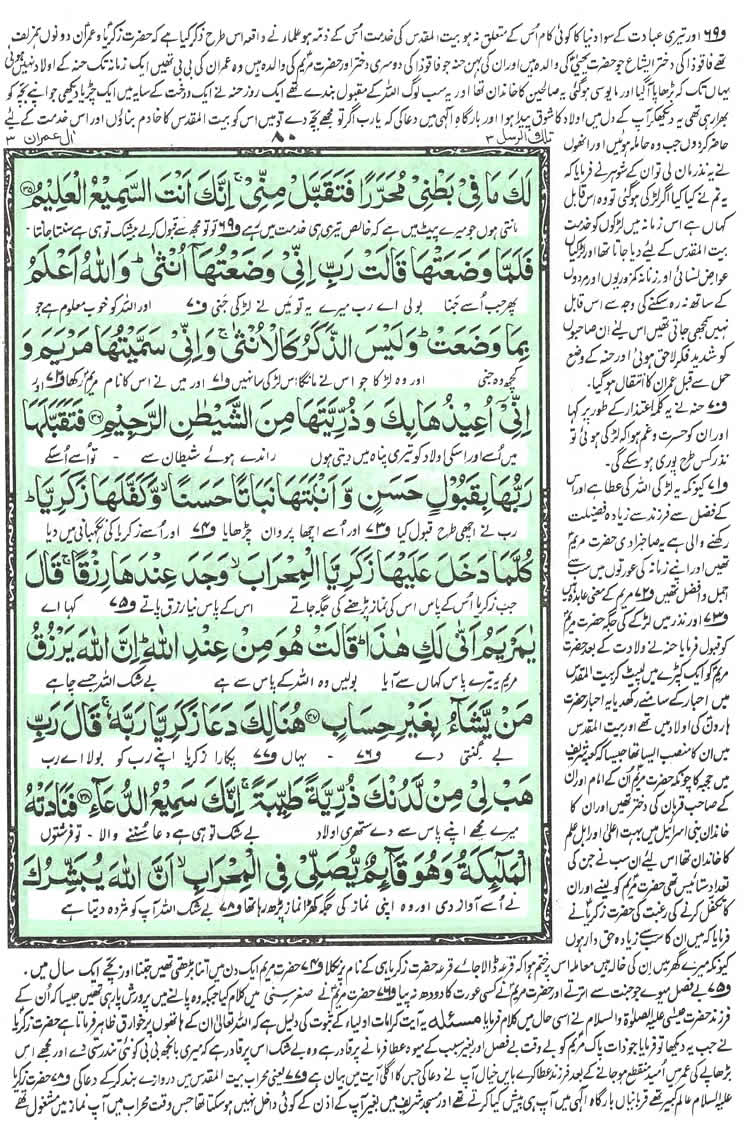 و۶۹ اور تیری عبادت کے سوا دنیا کا کوئی کام اُس کے متعلق نہ ہو بیت المقدس کی خدمت اُس کے ذمہ ہو علمار نے واقعہ اس طرح ذکر کیا ہے کہ حضرت زکریا و عمران دونوں ہمزلف
تھے فاقوذا کی دختر ایشاع جو حضرت یحییٰ کی والدہ ہیں اور ان کی بہن حنہ جو فاقوذا کی دوسری دختر اور حضرت مریم کی والدہ ہیں وہ عمران کی بی بی تھیں ایک زمانہ تک حنہ کے اولاد نہیں ہوئی
یہاں تک کہ بڑھاپا آگیا اور مایوسی ہوگئی یہ صالحین کا خاندان تھا اور یہ سب لوگ اللہ کے مقبول بندے تھے ایک روز حنہ نے ایک درخت کے سایہ میں ایک چڑیا دیکھی جو اپنے بچہ کو
بھرا رہی تھی یہ دیکھ کر آپ کے دل میں اولاد کا شوق پیدا ہوا اور بارگاہ الٰہی میں دعا کی کہ یارب اگر تو مجھے بچہ دے تو میں اس کو بیت المقدس کا خادم بناؤں اور اس خدمت کے لیے
تلك الرسل ۳
۸۰
اٰل عمران ۳
حاضر کردوں جب وہ حاملہ ہوئیں اور انھوں
نے یہ نذر مان لی تو ان کے شوہر نے فرمایا کہ
یہ تم نے کیا کیا اگر لڑکی ہوگئی تو وہ اس قابل
کہاں ہے اس زمانہ میں لڑکوں کو خدمت
بیت المقدس کے لیے دیا جاتا تھا اور لڑکیاں
عوارض نسائی اور زنانہ کمزوریوں اور مردوں
کے ساتھ نہ رہ سکنے کی وجہ سے اس قابل
نہیں سمجھی جاتی تھیں اس لیے ان صاحبوں
کو شدید فکر لاحق ہوئی اور حنہ کے وضع
حمل سے قبل عمران کا انتقال ہوگیا۔
و۷۰ حنہ نے یہ کلمہ اعتذار کے طور پر کہا
اور ان کو حسرت و غم ہوا کہ لڑکی ہوئی تو
نذر کس طرح پوری ہوسکے گی۔
و۷۱ کیونکہ یہ لڑکی اللہ کی عطا ہے اور اس
کے فضل سے فرزند سے زیادہ فضیلت
رکھنے والی ہے یہ صاحبزادی حضرت مریم
تھیں اور اپنے زمانہ کی عورتوں میں سب سے
اجمل و افضل تھیں و۷۲ مریم کے معنی عابدہ ہیں
و۷۳ اور نذر میں لڑکے کی جگہ حضرت مریم
کو قبول فرمایا حنہ نے ولادت کے بعد حضرت
مریم کو ایک کپڑے میں لپیٹ کر بیت المقدس
میں احبار کے سامنے رکھ دیا یہ احبار حضرت
ہارون کی اولاد میں تھے اور بیت المقدس
میں ان کا منصب ایسا تھا جیسا کہ کعبہ شریف
میں حجبہ کا چونکہ حضرت مریم ان کے امام اور ان
کے صاحب قربان کی دختر تھیں اور ان کا
خاندان بنی اسرائیل میں بہت اعلیٰ اور اہل علم
کا خاندان تھا اس لیے ان سب نے جن کی
تعداد ستائیس تھی حضرت مریم کو لینے اور ان
کا تکفل کرنے کی رغبت کی حضرت زکریا نے
فرمایا کہ میں ان کا سب سے زیادہ حق دار ہوں
لَكَ مَا فِيْ بَطْنِيْ مُحَرَّرًا فَتَقَبَّلْ مِنِّيْ ۚ اِنَّكَ اَنْتَ السَّمِيْعُ الْعَلِيْمُ ۳۵
مانتی ہوں جو میرے پیٹ میں ہے کہ خالص تیری ہی خدمت میں رہے و۶۹ تو تو مجھ سے قبول کرلے بیشک تو ہی ہے سنتا جانتا -
فَلَمَّا وَضَعَتْهَا قَالَتْ رَبِّ اِنِّيْ وَضَعْتُهَآ اُنْثٰى ؕ وَاللّٰهُ اَعْلَمُ
پھر جب اُسے جنا بولی اے رب میرے یہ تو میں نے لڑکی جنی و۷۰ اور اللہ کو خوب معلوم ہے جو
بِمَا وَضَعَتْ ؕ وَلَيْسَ الذَّكَرُ كَالْاُنْثٰى ۚ وَاِنِّيْ سَمَّيْتُهَا مَرْيَمَ وَ
کچھ وہ جنی اور وہ لڑکا جو اس نے مانگا اس لڑکی سا نہیں و۷۱ اور میں نے اس کا نام مریم رکھا و۷۲ اور
اِنِّيْٓ اُعِيْذُهَا بِكَ وَذُرِّيَّتَهَا مِنَ الشَّيْطٰنِ الرَّجِيْمِ ۳۶ فَتَقَبَّلَهَا
میں اُسے اور اسکی اولاد کو تیری پناہ میں دیتی ہوں راندے ہوئے شیطان سے - تو اُسے اُسکے
رَبُّهَا بِقَبُوْلٍ حَسَنٍ وَّاَنْۢبَتَهَا نَبَاتًا حَسَنًا ۙ وَّكَفَّلَهَا زَكَرِيَّا ؕ
رب نے اچھی طرح قبول کیا و۷۳ اور اُسے اچھا پروان چڑھایا و۷۴ اور اُسے زکریا کی نگہبانی میں دیا
كُلَّمَا دَخَلَ عَلَيْهَا زَكَرِيَّا الْمِحْرَابَ ۙ وَجَدَ عِنْدَهَا رِزْقًا ۚ قَالَ
جب زکریا اُس کے پاس اس کی نماز پڑھنے کی جگہ جاتے اس کے پاس نیا رزق پاتے و۷۵ کہا اے
يٰمَرْيَمُ اَنّٰى لَكِ هٰذَا ؕ قَالَتْ هُوَ مِنْ عِنْدِ اللّٰهِ ؕ اِنَّ اللّٰهَ يَرْزُقُ
مریم یہ تیرے پاس کہاں سے آیا بولیں وہ اللہ کے پاس سے ہے بے شک اللہ جسے چاہے
مَنْ يَّشَآءُ بِغَيْرِ حِسَابٍ ۳۷ هُنَالِكَ دَعَا زَكَرِيَّا رَبَّهٗ ۚ قَالَ رَبِّ
بے گنتی دے و۷۶ - یہاں و۷۷ پکارا زکریا اپنے رب کو بولا اے رب
هَبْ لِيْ مِنْ لَّدُنْكَ ذُرِّيَّةً طَيِّبَةً ۚ اِنَّكَ سَمِيْعُ الدُّعَآءِ ۳۸ فَنَادَتْهُ
میرے مجھے اپنے پاس سے دے ستھری اولاد بے شک تو ہی ہے دعا سننے والا - تو فرشتوں
الْمَلٰٓئِكَةُ وَهُوَ قَآئِمٌ يُّصَلِّيْ فِي الْمِحْرَابِ ۙ اَنَّ اللّٰهَ يُبَشِّرُكَ
نے اُسے آواز دی اور وہ اپنی نماز کی جگہ کھڑا نماز پڑھ رہا تھا و۷۸ بے شک اللہ آپ کو مژدہ دیتا ہے
کیونکہ میرے گھر میں ان کی خالہ ہیں معاملہ اس پر ختم ہوا کہ قرعہ ڈالا جائے قرعہ حضرت زکریا ہی کے نام پر نکلا و۷۴ حضرت مریم ایک دن میں اتنا بڑھتی تھیں جتنا اور بچے ایک سال میں ۔
و۷۵ بے فصل میوے جو جنت سے اترتے اور حضرت مریم نے کسی عورت کا دودھ نہ پیا و۷۶ حضرت مریم نے صغر سنی میں کلام کیا جبکہ وہ پالنے میں پرورش پا رہی تھیں جیسا کہ اُن کے
فرزند حضرت عیسیٰ علیہ الصلوٰۃ والسلام نے اسی حال میں کلام فرمایا مسئلہ یہ آیت کرامات اولیاء کے ثبوت کی دلیل ہے کہ اللہ تعالیٰ ان کے ہاتھوں پر خوارق ظاہر فرماتا ہے حضرت زکریا
نے جب یہ دیکھا تو فرمایا جو ذات پاک مریم کو بے وقت بے فصل اور بغیر سبب کے میوہ عطا فرمانے پر قادر ہے وہ بے شک اس پر قادر ہے کہ میری بانجھ بی بی کو نئی تندرستی دے اور مجھے اس
بڑھاپے کی عمر میں امید منقطع ہوجانے کے بعد فرزند عطا کرے بایں خیال آپ نے دعا کی جس کا اگلی آیت میں بیان ہے و۷۷ یعنی محراب بیت المقدس میں دروازے بند کرکے دعا کی و۷۸ حضرت زکریا
علیہ السلام عالم کبیر تھے قربانیاں بارگاہ الٰہی میں آپ ہی پیش کیا کرتے تھے اور مسجد شریف میں بغیر آپ کے اذن کے کوئی داخل نہیں ہوسکتا تھا جس وقت محراب میں آپ نماز میں مشغول تھے